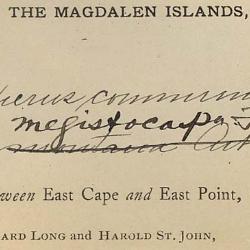 THE MAGDALEN ISLANDS,
perus communi
megistocarpa F
montana Ait
ween East Cape and East Point,
ARD LONG AND HAROLD ST. JOHN,